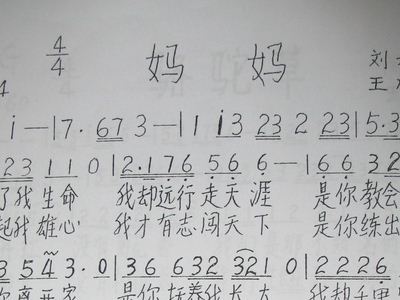 4/4 妈 妈 刘
4 王
i — | 7· 67 3 — | 1 i3 23 2 23 | 5·3
23 11 0 | 2·176 56 6 — | 66 32
了我 生命 我却远行 走天 涯 是你 教会
起我 雄心 我才有志 闯天 下 是你 练出
3 54 3· 0 | 36 632 321 0 | 2226
离开家 是你抚养我长大 我却